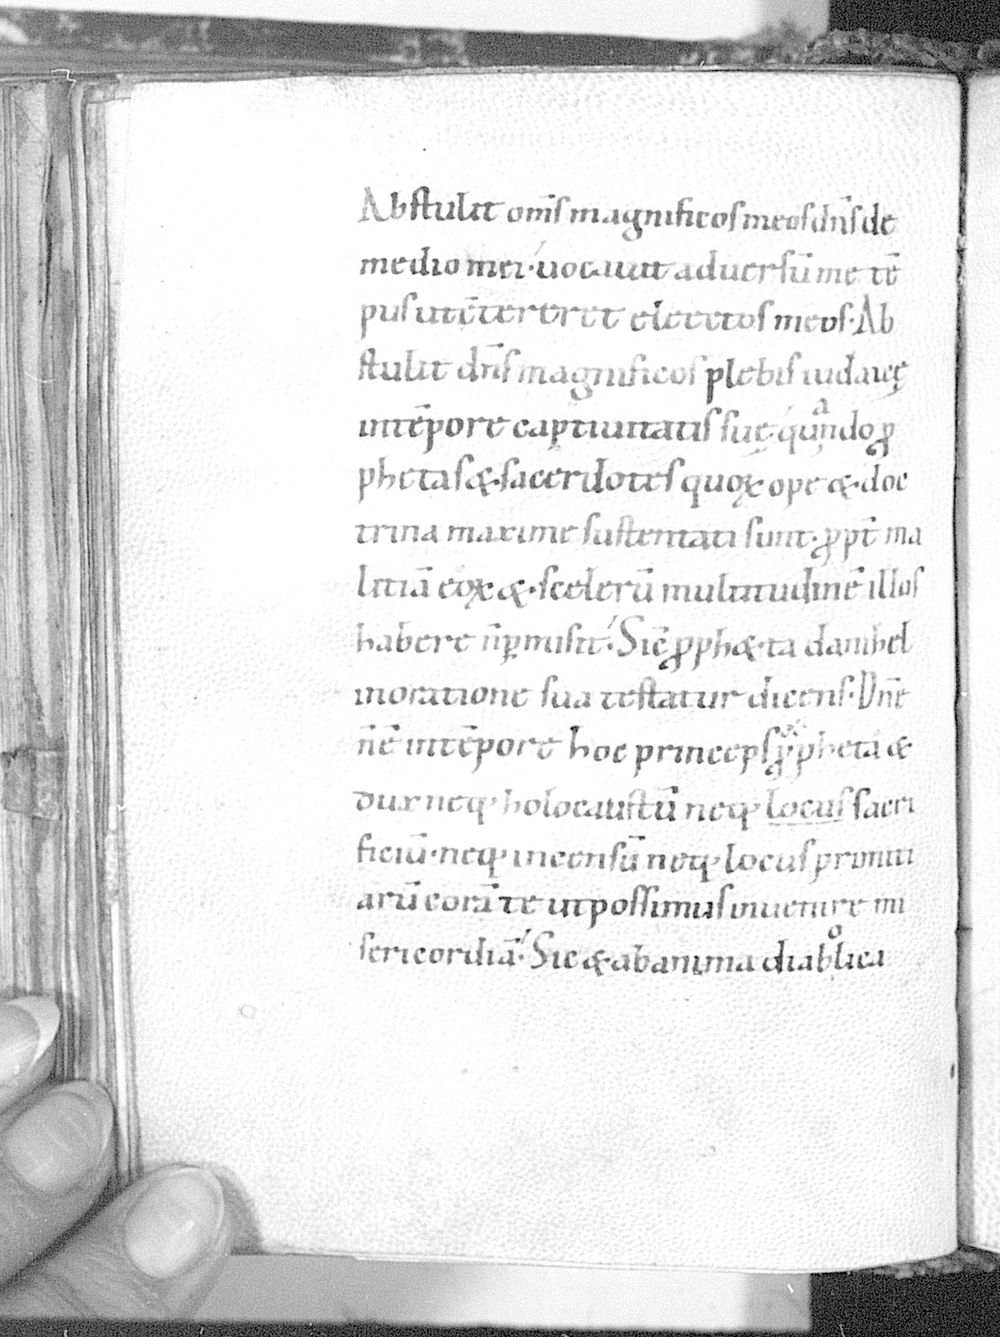 Abstulit om̅s magnificos meos dn̅s de
medio mei· uocauit aduersū me tē
pus ut ctereret electos meos· Ab
stulit dn̅s magnificos plebis iudaicę
in tēpore captiuitatis suę· quando ꝓ
phetas &· sacerdotes quoꝝ ope &· doc
trina maxime sustentati sunt· ꝓpt̄ ma
litiā eoꝝ &· scelerū multitudinē illos
habere n̄ ꝑmisit· Sic̄ ꝓph&a danihel
in oratione sua testatur dicens· Dn̄e
n̄ ē in tēpore hoc princeps ꝓpheta &
dux neq; holocaustū neq; locus sacri
ficiū· neq; incensū neq; locus primiti
arū corā te ut possimus inuenire mi
sericordiā· Sic &· ab anima diabolica